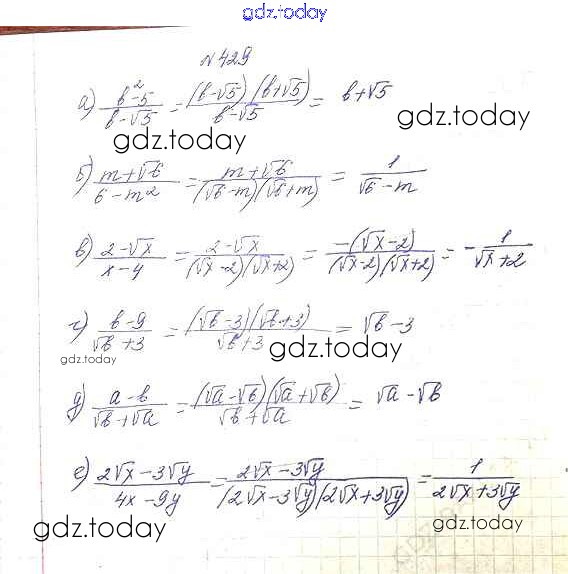 gdz.today
№429
а) (b²-5)/(b-√5) = ((b-√5)(b+√5))/(b-√5) = b+√5
gdz.today
gdz.today
б) (m+√6)/(6-m²) = (m+√6)/((√6-m)(√6+m)) = 1/(√6-m)
в) (2-√x)/(x-4) = (2-√x)/((√x-2)(√x+2)) = (-(√x-2))/((√x-2)(√x+2)) = -1/(√x+2)
г) (b-9)/(√b+3) = ((√b-3)(√b+3))/(√b+3) = √b-3
gdz.today
gdz.today
д) (a-b)/(√b+√a) = ((√a-√b)(√a+√b))/(√b+√a) = √a-√b
е) (2√x-3√y)/(4x-9y) = (2√x-3√y)/((2√x-3√y)(2√x+3√y)) = 1/(2√x+3√y)
gdz.today
gdz.today